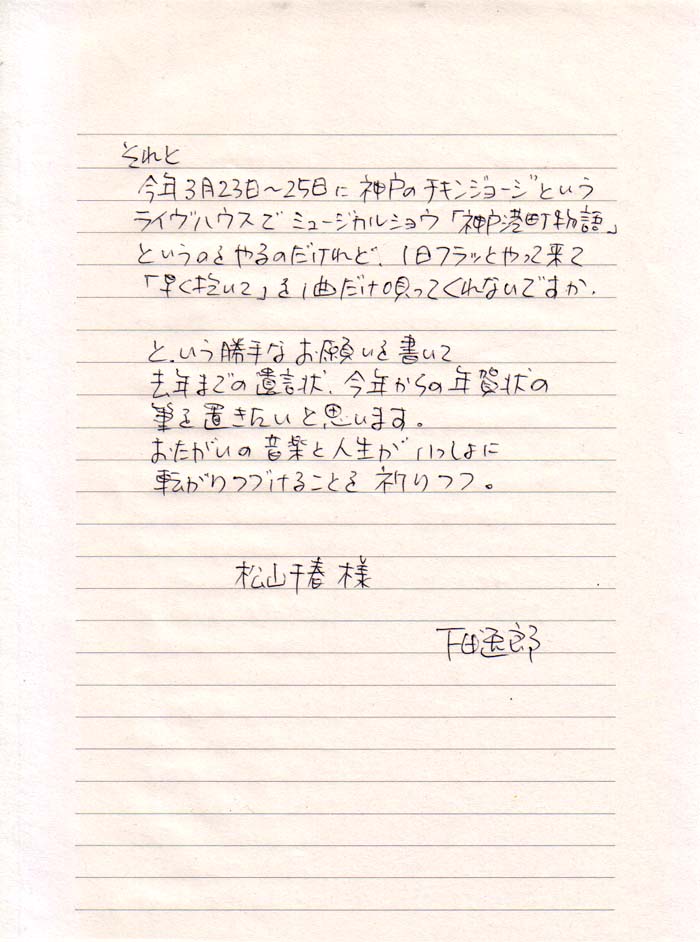 それと
今年3月23日〜25日に神戸のチキンジョージという
ライヴハウスでミュージカルショウ「神戸港町物語」
というのをやるのだけれど、1日フラッとやって来て
「早く抱いて」を1曲だけ唄ってくれないですか.
という勝手なお願いを書いて
去年までの遺言状、今年からの年賀状の
筆を置きたいと思います。
おたがいの音楽と人生がいっしょに
転がりつづけることを祈りつつ。
松山千春様
下田逸郎